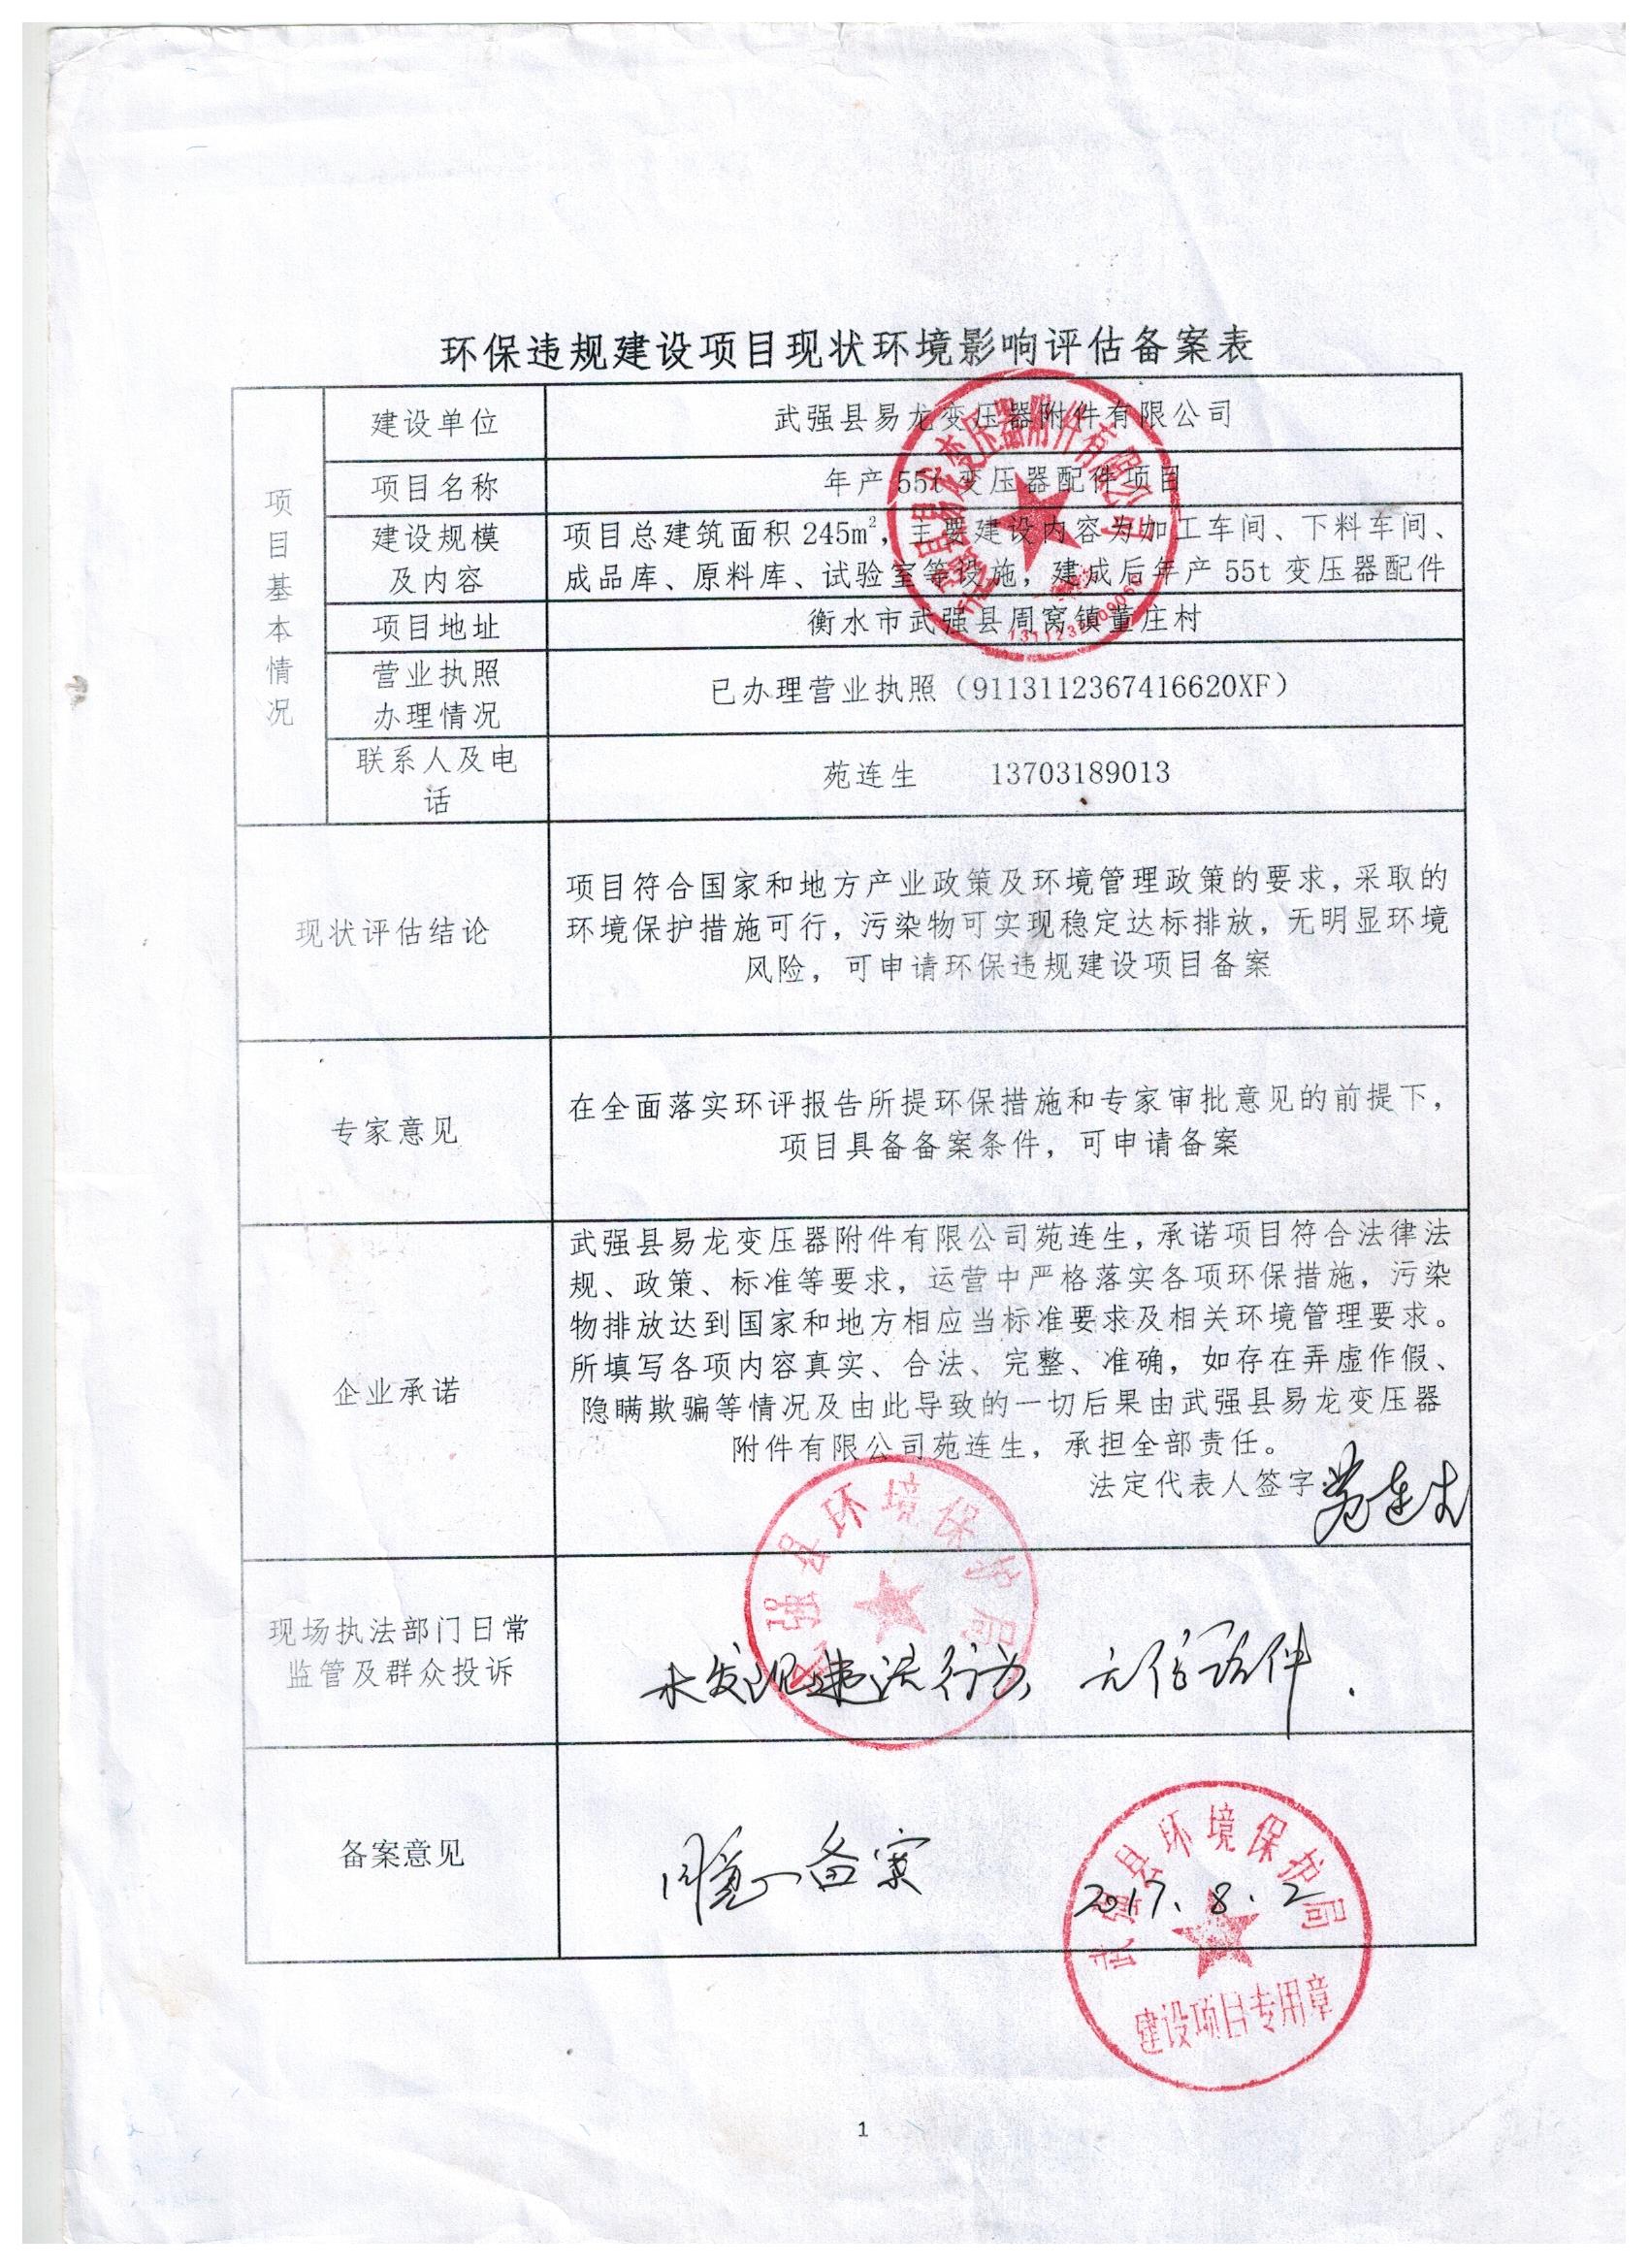 环保违规建设项目现状环境影响评估备案表
项目基本情况
建设单位
武强县易龙变压器附件有限公司
项目名称
年产 55t 变压器配件项目
建设规模
及内容
项目总建筑面积 245m²，主要建设内容为加工车间、下料车间、
成品库、原料库、试验室等设施，建成后年产 55t 变压器配件
项目地址
衡水市武强县周窝镇董庄村
营业执照
办理情况
已办理营业执照（9113112367416620XF）
联系人及电
话
苑连生 13703189013
现状评估结论
项目符合国家和地方产业政策及环境管理政策的要求，采取的
环境保护措施可行，污染物可实现稳定达标排放，无明显环境
风险，可申请环保违规建设项目备案
专家意见
在全面落实环评报告所提环保措施和专家审批意见的前提下，
项目具备备案条件，可申请备案
企业承诺
武强县易龙变压器附件有限公司苑连生，承诺项目符合法律法
规、政策、标准等要求，运营中严格落实各项环保措施，污染
物排放达到国家和地方相应当标准要求及相关环境管理要求。
所填写各项内容真实、合法、完整、准确，如存在弄虚作假、
隐瞒欺骗等情况及由此导致的一切后果由武强县易龙变压器
附件有限公司苑连生，承担全部责任。
法定代表人签字 苑连生
武强县环境保护局
现场执法部门日常
监管及群众投诉
未发现违法行为，无信访件.
备案意见
同意备案
2017.8.2
武强县环境保护局
建设项目专用章
1